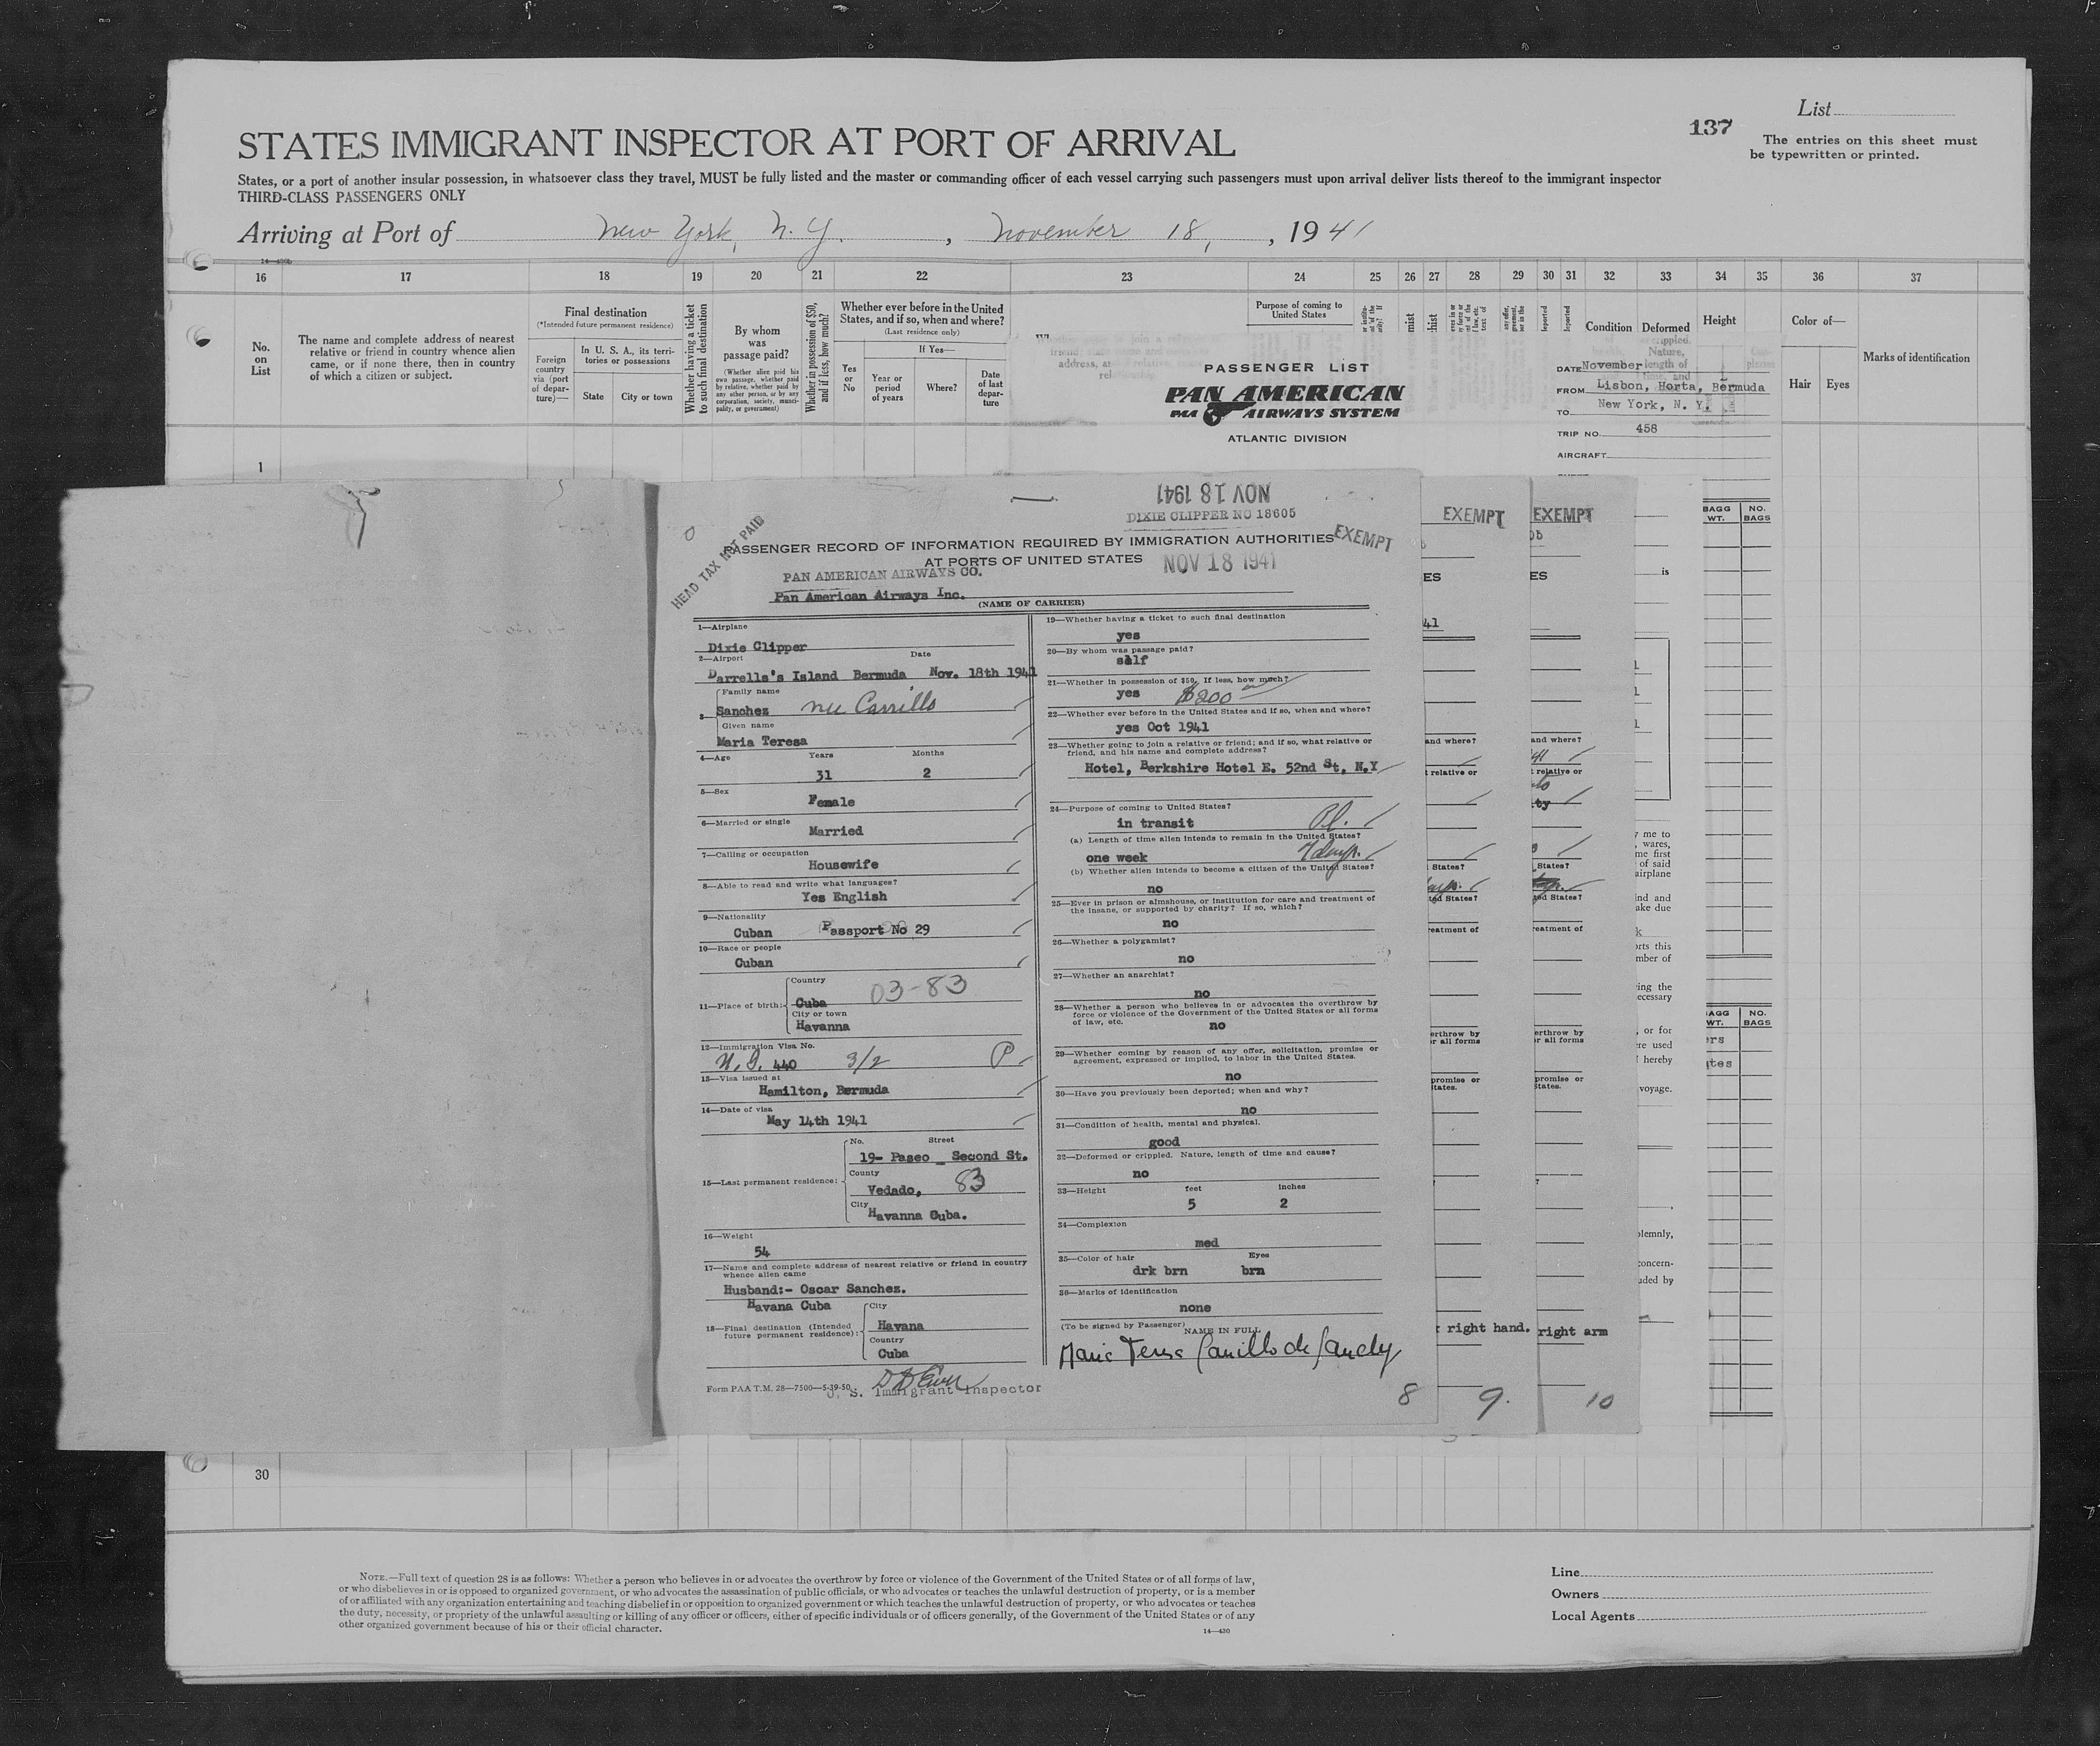 List
137
The entries on this sheet must
be typewritten or printed.
STATES IMMIGRANT INSPECTOR AT PORT OF ARRIVAL
States, or a port of another insular possession, in whatsoever class they travel, MUST be fully listed and the master or commanding officer of each vessel carrying such passengers must upon arrival deliver lists thereof to the immigrant inspector
THIRD-CLASS PASSENGERS ONLY
Arriving at Port of New York, N. Y., November 18, 1941
16 17 18 19 20 21 22 23 24 25 26 27 28 29 30 31 32 33 34 35 36 37
No. on List
The name and complete address of nearest
relative or friend in country whence alien
came, or if none there, then in country
of which a citizen or subject.
Final destination
(*Intended future permanent residence)
Foreign
country
via (port
of depar-
ture)—
In U. S. A., its terri-
tories or possessions
State
City or town
Whether having a ticket
to such final destination
By whom
was
passage paid?
(Whether alien paid his
own passage, whether paid
by relative, whether paid by
any other person, or by any
corporation, society, munici-
pality, or government)
Whether in possession of $50,
and if less, how much?
Whether ever before in the United
States, and if so, when and where?
(Last residence only)
If Yes—
Yes
or
No
Year or
period
of years
Where?
Date
of last
depar-
ture
Purpose of coming to
United States
Condition
Deformed
Height
Color of—
Hair Eyes
Marks of identification
PASSENGER LIST
PAN AMERICAN
PAA AIRWAYS SYSTEM
ATLANTIC DIVISION
DATE November
FROM Lisbon, Horta, Bermuda
TO New York, N. Y.
TRIP NO. 458
AIRCRAFT
1
NOV 18 1941
DIXIE CLIPPER NO 18605
HEAD TAX NOT PAID
EXEMPT
PASSENGER RECORD OF INFORMATION REQUIRED BY IMMIGRATION AUTHORITIES
AT PORTS OF UNITED STATES
NOV 18 1941
PAN AMERICAN AIRWAYS CO.
Pan American Airways Inc.
(NAME OF CARRIER)
1—Airplane
Dixie Clipper
2—Airport Date
Darrells's Island Bermuda Nov. 18th 1941
3— Family name
Sanchez nee Carrillo
Given name
Maria Teresa
4—Age Years Months
31 2
5—Sex
Female
6—Married or single
Married
7—Calling or occupation
Housewife
8—Able to read and write what languages?
Yes English
9—Nationality
Cuban Passport No 29
10—Race or people
Cuban
11—Place of birth:
Country
Cuba 03-83
City or town
Havanna
12—Immigration Visa No.
440 3/2 P
13—Visa issued at
Hamilton, Bermuda
14—Date of visa
May 14th 1941
15—Last permanent residence:
No. Street
19- Paseo _ Second St.
County
Vedado, 83
City
Havanna Cuba.
16—Weight
54
17—Name and complete address of nearest relative or friend in country
whence alien came
Husband:- Oscar Sanchez.
Havana Cuba
18—Final destination (Intended
future permanent residence):
City
Havana
Country
Cuba
Form PAA T.M. 28—7500—5-39-50
U. S. Immigrant Inspector
19—Whether having a ticket to such final destination
yes
20—By whom was passage paid?
self
21—Whether in possession of $50. If less, how much?
yes $200
22—Whether ever before in the United States and if so, when and where?
yes Oct 1941
23—Whether going to join a relative or friend; and if so, what relative or
friend, and his name and complete address?
Hotel, Berkshire Hotel E. 52nd St. N.Y
24—Purpose of coming to United States?
in transit
(a) Length of time alien intends to remain in the United States?
one week 7 days.
(b) Whether alien intends to become a citizen of the United States?
no
25—Ever in prison or almshouse, or institution for care and treatment of
the insane, or supported by charity? If so, which?
no
26—Whether a polygamist?
no
27—Whether an anarchist?
no
28—Whether a person who believes in or advocates the overthrow by
force or violence of the Government of the United States or all forms
of law, etc.
no
29—Whether coming by reason of any offer, solicitation, promise or
agreement, expressed or implied, to labor in the United States.
no
30—Have you previously been deported; when and why?
no
31—Condition of health, mental and physical.
good
32—Deformed or crippled. Nature, length of time and cause?
no
33—Height feet inches
5 2
34—Complexion
med
35—Color of hair Eyes
drk brn brn
36—Marks of identification
none
(To be signed by Passenger) NAME IN FULL
Maria Teresa Carrillo de Sanchez
8
EXEMPT
right hand.
9.
EXEMPT
right arm
10
BAGG WT. NO. BAGS
30
NOTE.—Full text of question 28 is as follows: Whether a person who believes in or advocates the overthrow by force or violence of the Government of the United States or of all forms of law,
or who disbelieves in or is opposed to organized government, or who advocates the assassination of public officials, or who advocates or teaches the unlawful destruction of property, or is a member
of or affiliated with any organization entertaining and teaching disbelief in or opposition to organized government or which teaches the unlawful destruction of property, or who advocates or teaches
the duty, necessity, or propriety of the unlawful assaulting or killing of any officer or officers, either of specific individuals or of officers generally, of the Government of the United States or of any
other organized government because of his or their official character.
14—430
Line
Owners
Local Agents